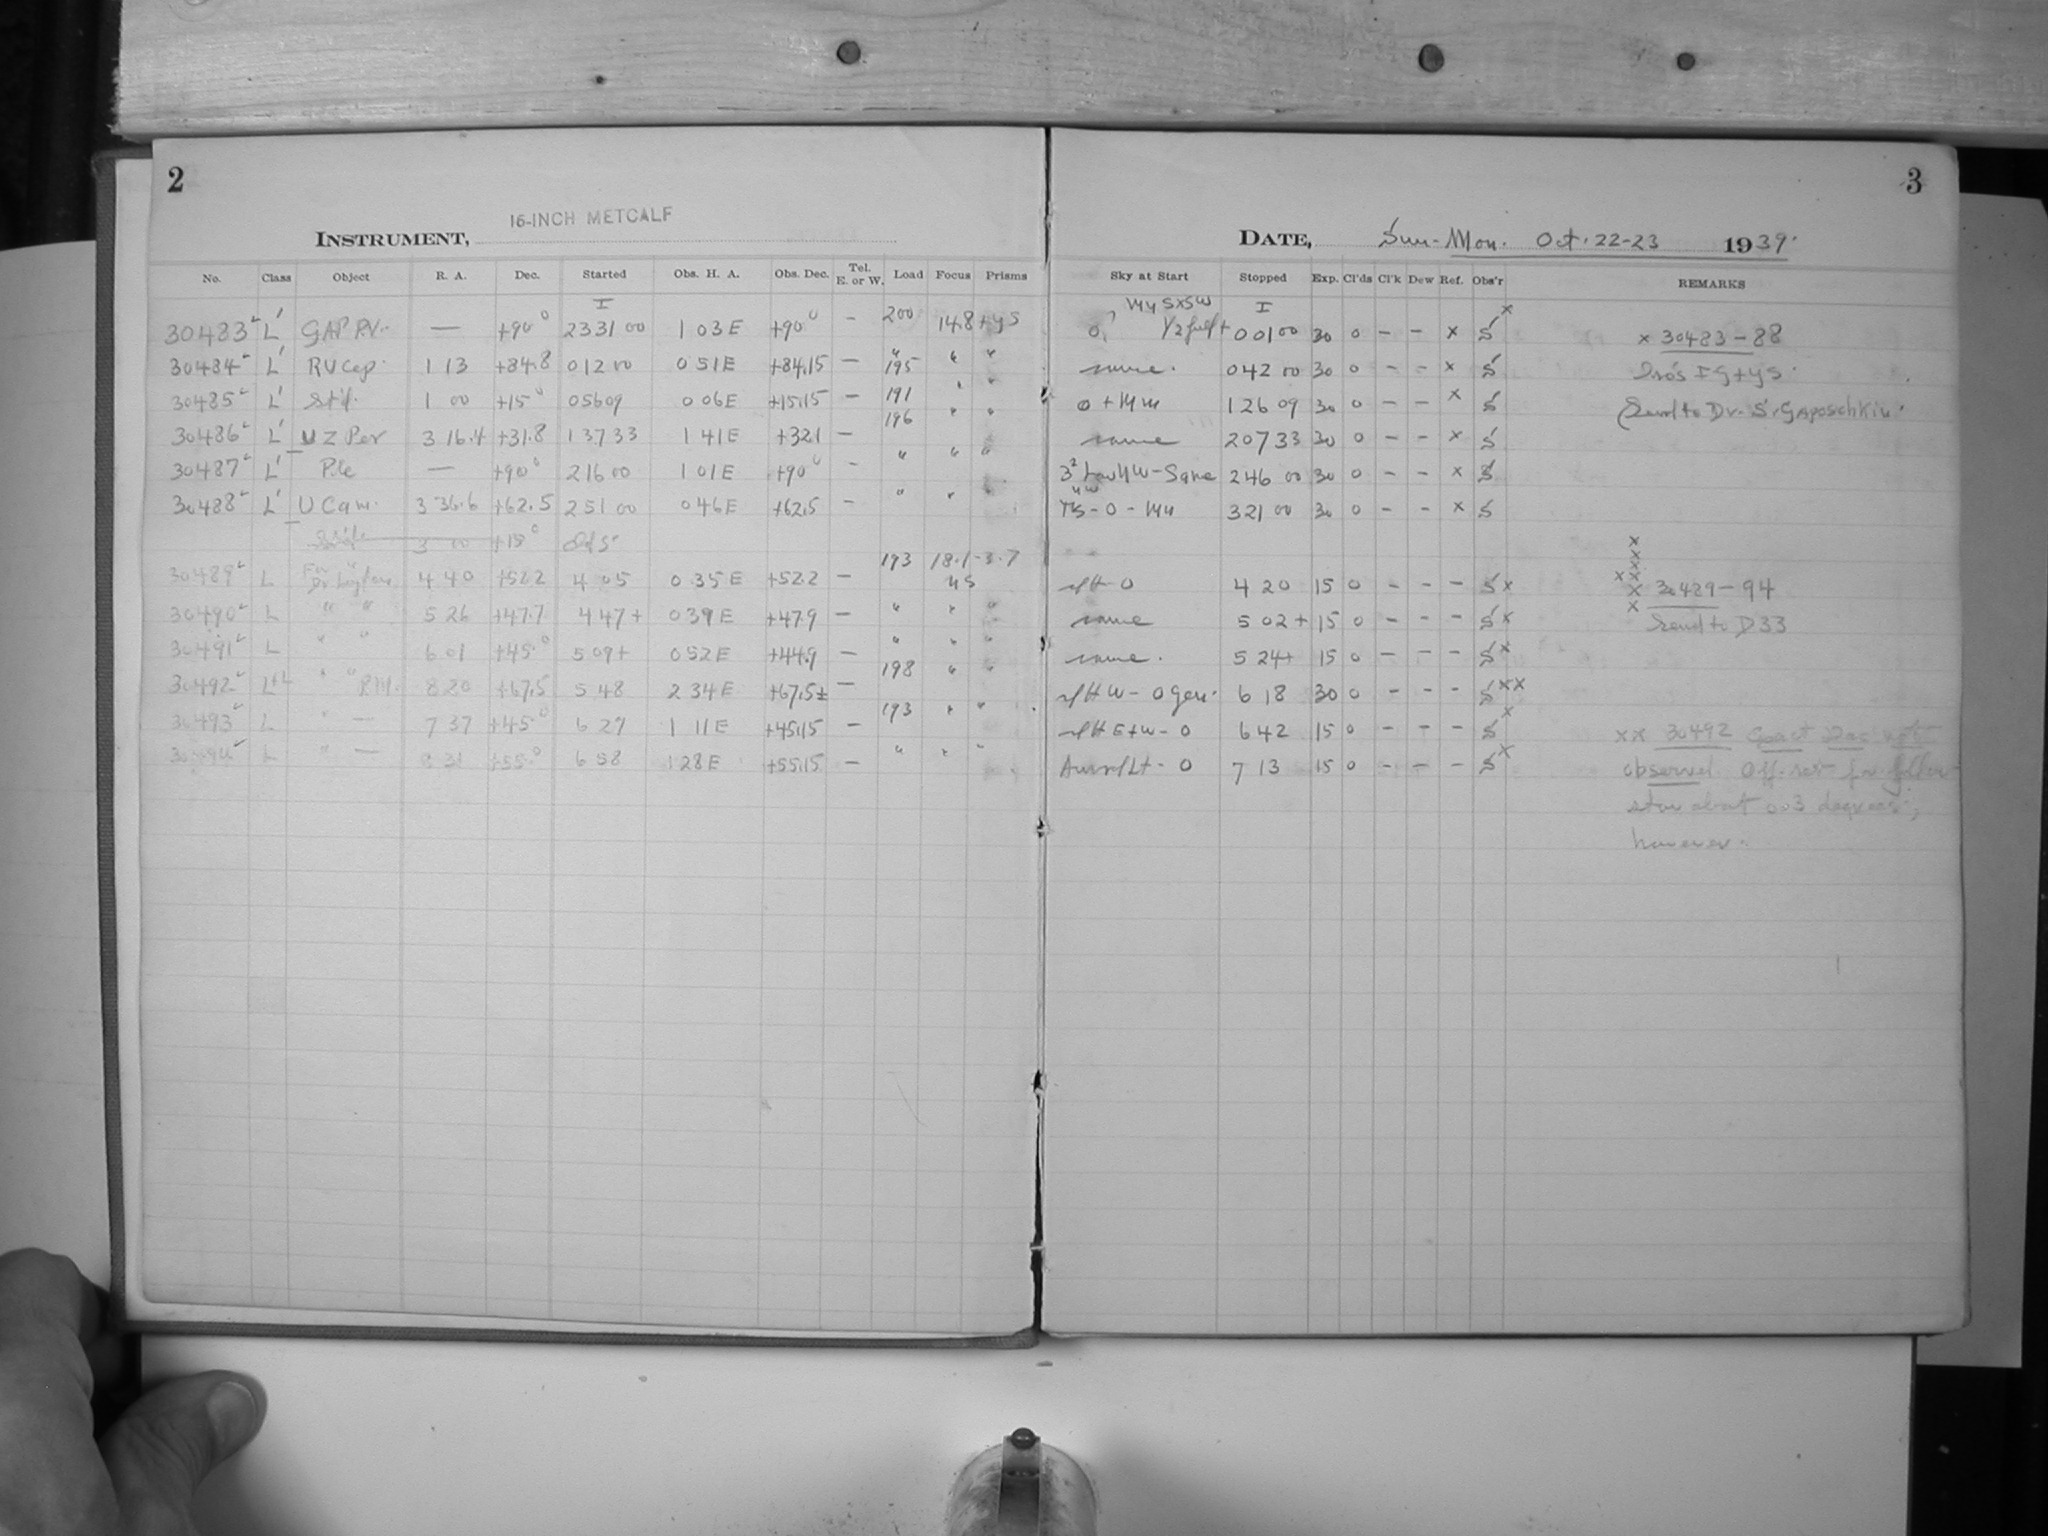 2
16-INCH METCALF
INSTRUMENT,
No. Class Object R. A. Dec. Started Obs. H. A. Obs. Dec. Tel. E. or W. Load Focus Prisms
I
30483 L' GAP RV. — +90° 23 31 00 1 03 E +90° - 200 14.8 + ys
30484 L' RV Cep. 1 13 +84.8 0 12 00 0 51 E +84.15 — " " "
30485 L' 1 00 +15° 0 56 09 0 06 E +15.15 — 195 " "
30486 L' UZ Per 3 16.4 +31.8 1 37 33 1 41 E +32.1 — 191 " "
196
30487 L' Pole — +90° 2 16 00 1 01 E +90° - " " "
30488 L' U Cam. 3 36.6 +62.5 2 51 00 0 46 E +62.5 - " " "
3 00 +15°
30489 L For Dr. 4 40 +52.2 4 05 0 35 E +52.2 — 193 18.1 - 3.7
30490 L " " 5 26 +47.7 4 47+ 0 39 E +47.9 — " " "
30491 L " " 6 01 +45.0 5 09+ 0 52 E +44.9 — " " "
30492 L " " 8 20 +67.5 5 48 2 34 E +67.5± — 198 " "
30493 L " — 7 37 +45° 6 27 1 11 E +45.15 — 193 " "
30494 L " — 8 31 +55° 6 58 1 28 E +55.15 — " " "
3
DATE, Sun-Mon. Oct. 22-23 1939.
Sky at Start Stopped Exp. Cl'ds Cl'k Dew Ref. Obs'r REMARKS
I
0, 1/2 full+ 0 01 00 30 0 - - x S x x 30483-88
same. 0 42 00 30 0 - - x S
0 + 1 26 09 30 0 - - x S (Send to Dr. S. Gaposchkin.
same 2 07 33 30 0 - - x S
2 46 00 30 0 - - x S
- 0 - 3 21 00 30 0 - - x S
0 4 20 15 0 - - - S x x 30489-94
same 5 02+ 15 0 - - - S x Send to D33
same. 5 24+ 15 0 - - - S x
- 0 gen. 6 18 30 0 - - - S xx
E+W - 0 6 42 15 0 - - - S x xx 30492 Exact Dec not
- 0 7 13 15 0 - - - S x observed. Off-set for follow
star about 0.03 degrees,
however.